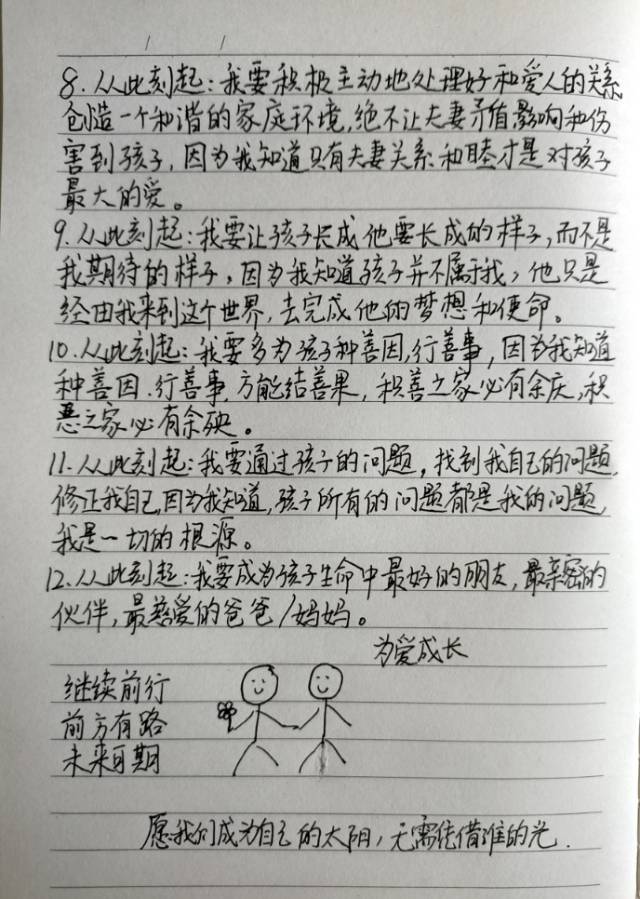 8.从此刻起:我要积极主动地处理好和爱人的关系,
创造一个和谐的家庭环境,绝不让夫妻矛盾影响和伤
害到孩子,因为我知道只有夫妻关系和睦才是对孩子
最大的爱。
9.从此刻起:我要让孩子长成他要长成的样子,而不是
我期待的样子,因为我知道孩子并不属于我,他只是
经由我来到这个世界,去完成他的梦想和使命。
10.从此刻起:我要多为孩子种善因,行善事,因为我知道
种善因.行善事,方能结善果,积善之家必有余庆,积
恶之家必有余殃。
11.从此刻起:我要通过孩子的问题,找到我自己的问题,
修正我自己,因为我知道,孩子所有的问题都是我的问题,
我是一切的根源。
12.从此刻起:我要成为孩子生命中最好的朋友,最亲密的
伙伴,最慈爱的爸爸/妈妈。
为爱成长
继续前行
前方有路
未来可期
愿我们成为自己的太阳,无需凭借谁的光.